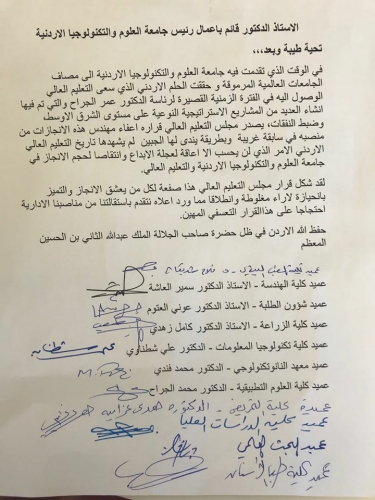 الاستاذ الدكتور قائم باعمال رئيس جامعة العلوم والتكنولوجيا الاردنية
تحية طيبة وبعد،،،
في الوقت الذي تقدمت فيه جامعة العلوم والتكنولوجيا الاردنية الى مصاف
الجامعات العالمية المرموقة و حققت الحلم الأردني الذي سعى التعليم العالي
الوصول اليه في الفترة الزمنية القصيرة لرئاسة الدكتور عمر الجراح والتي تم فيها
انشاء العديد من المشاريع الاستراتيجية النوعية على مستوى الشرق الاوسط،
وضبط النفقات، يصدر مجلس التعليم العالي قراره اعفاء مهندس هذه الانجازات من
منصبه في سابقة غريبة وبطريقة يندى لها الجبين لم يشهدها تاريخ التعليم العالي
الأردني الامر الذي لن يحسب الا اعاقة لعجلة الابداع وانتقاصا لحجم الانجاز في
جامعة العلوم والتكنولوجيا الاردنية والتعليم العالي.
لقد شكل قرار مجلس التعليم العالي هذا صفعة لكل من يعشق الانجاز والتميز
بانحيازة لاراء مغلوطة وانطلاقا مما ورد اعلاه نتقدم باستقالتنا من مناصبنا الادارية
احتجاجا على هذاالقرار التعسفي المهين.
حفظ الله الاردن في ظل حضرة صاحب الجلالة الملك عبدالله الثاني بن الحسين
المعظم
عميد كلية الهندسة - الاستاذ الدكتور سمير العاشة
عميد شؤون الطلبة - الاستاذ الدكتور عوني العتوم
عميد كلية الزراعة - الاستاذ الدكتور كامل زهدي
عميد كلية تكنولوجيا المعلومات - الدكتور علي شطناوي
عميد معهد النانوتكنولوجي - الدكتور محمد فندي
عميد كلية العلوم التطبيقية - الدكتور محمد الجراح
عميدة كلية التمريض - الدكتوره هدى غرايبه
عميد كلية الدراسات العليا
عميد البحث العلمي
عميد كلية طب الأسنان